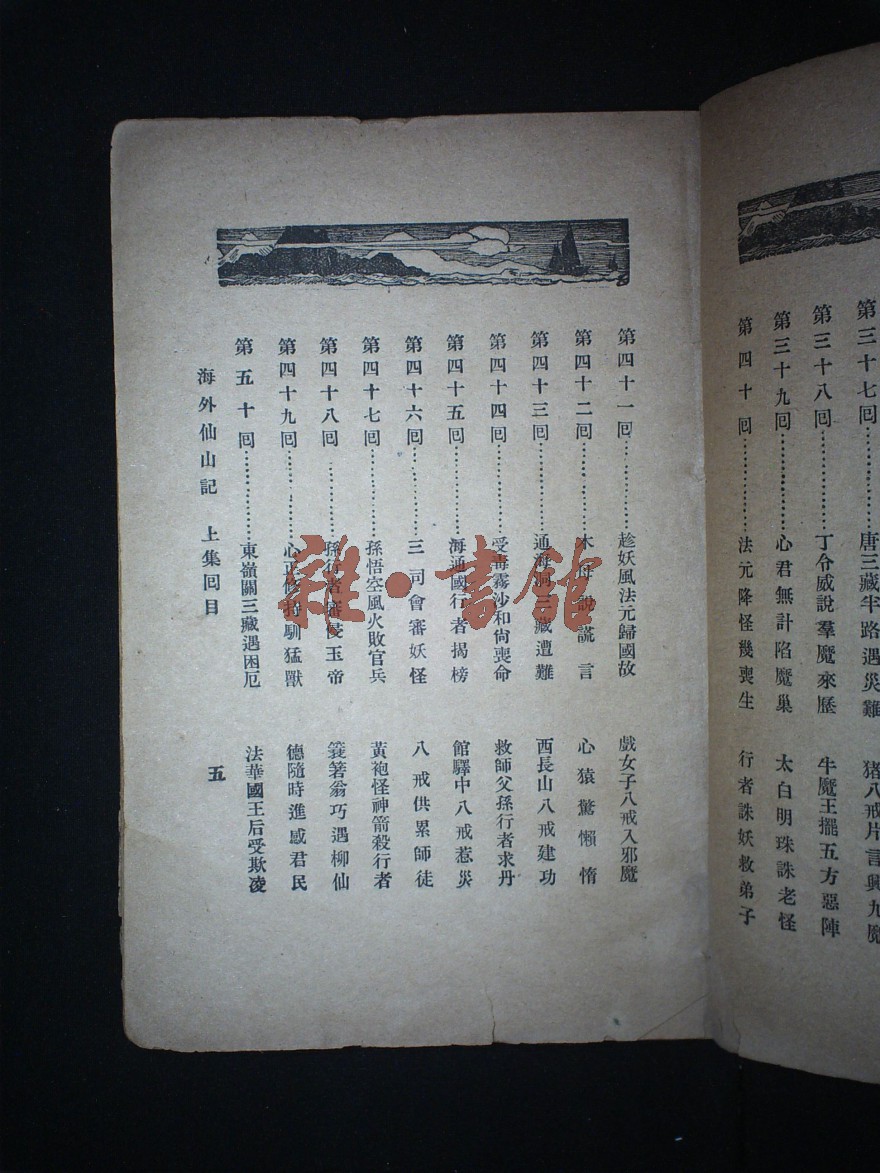 第三十七回……………唐三藏半路遇災難 猪八戒片言興九魔
第三十八回……………丁令威說羣魔來歷 牛魔王擺五方惡陣
第三十九回……………心君無計陷魔巢 太白明珠誅老怪
第四十回……………法元降怪幾喪生 行者誅妖救弟子
第四十一回……………趁妖風法元歸國故 戲女子八戒入邪魔
第四十二回……………木母說謊言 心猿驚懶惰
第四十三回……………通海洞三藏遭難 西長山八戒建功
第四十四回……………受毒霧沙和尙喪命 救師父孫行者求丹
第四十五回……………海通國行者揭榜 館驛中八戒惹災
第四十六回……………三司會審妖怪 八戒供累師徒
第四十七回……………孫悟空風火敗官兵 黃袍怪神箭殺行者
第四十八回……………孫行者審憂玉帝 簑著翁巧遇柳仙
第四十九回……………心正修持馴猛獸 德隨時進感君民
第五十回……………東嶺關三藏遇困厄 法華國王后受欺凌
海外仙山記 上集回目 五
雜·書館